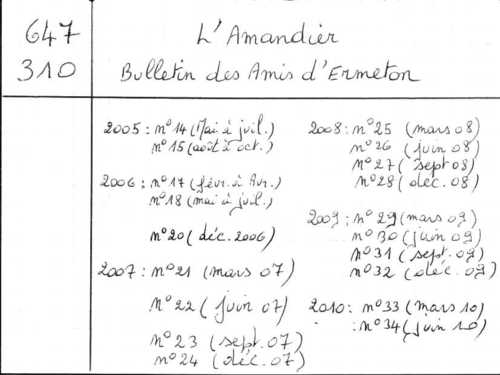 647
310
L'Amandier
Bulletin des Amis d'Ermeton
2005 : n° 14 (Mai à juil.)
n° 15 (août à oct.)
2006 : n° 17 (févr. à Avr.)
n° 18 (mai à juil.)
n° 20 (déc. 2006)
2007 : n° 21 (mars 07)
n° 22 (juin 07)
n° 23 (sept. 07)
n° 24 (déc. 07)
2008 : n° 25 (mars 08)
n° 26 (juin 08)
n° 27 (sept 08)
n° 28 (déc. 08)
2009 : n° 29 (mars 09)
n° 30 (juin 09)
n° 31 (sept. 09)
n° 32 (déc. 09)
2010 : n° 33 (mars 10)
: n° 34 (juin 10)